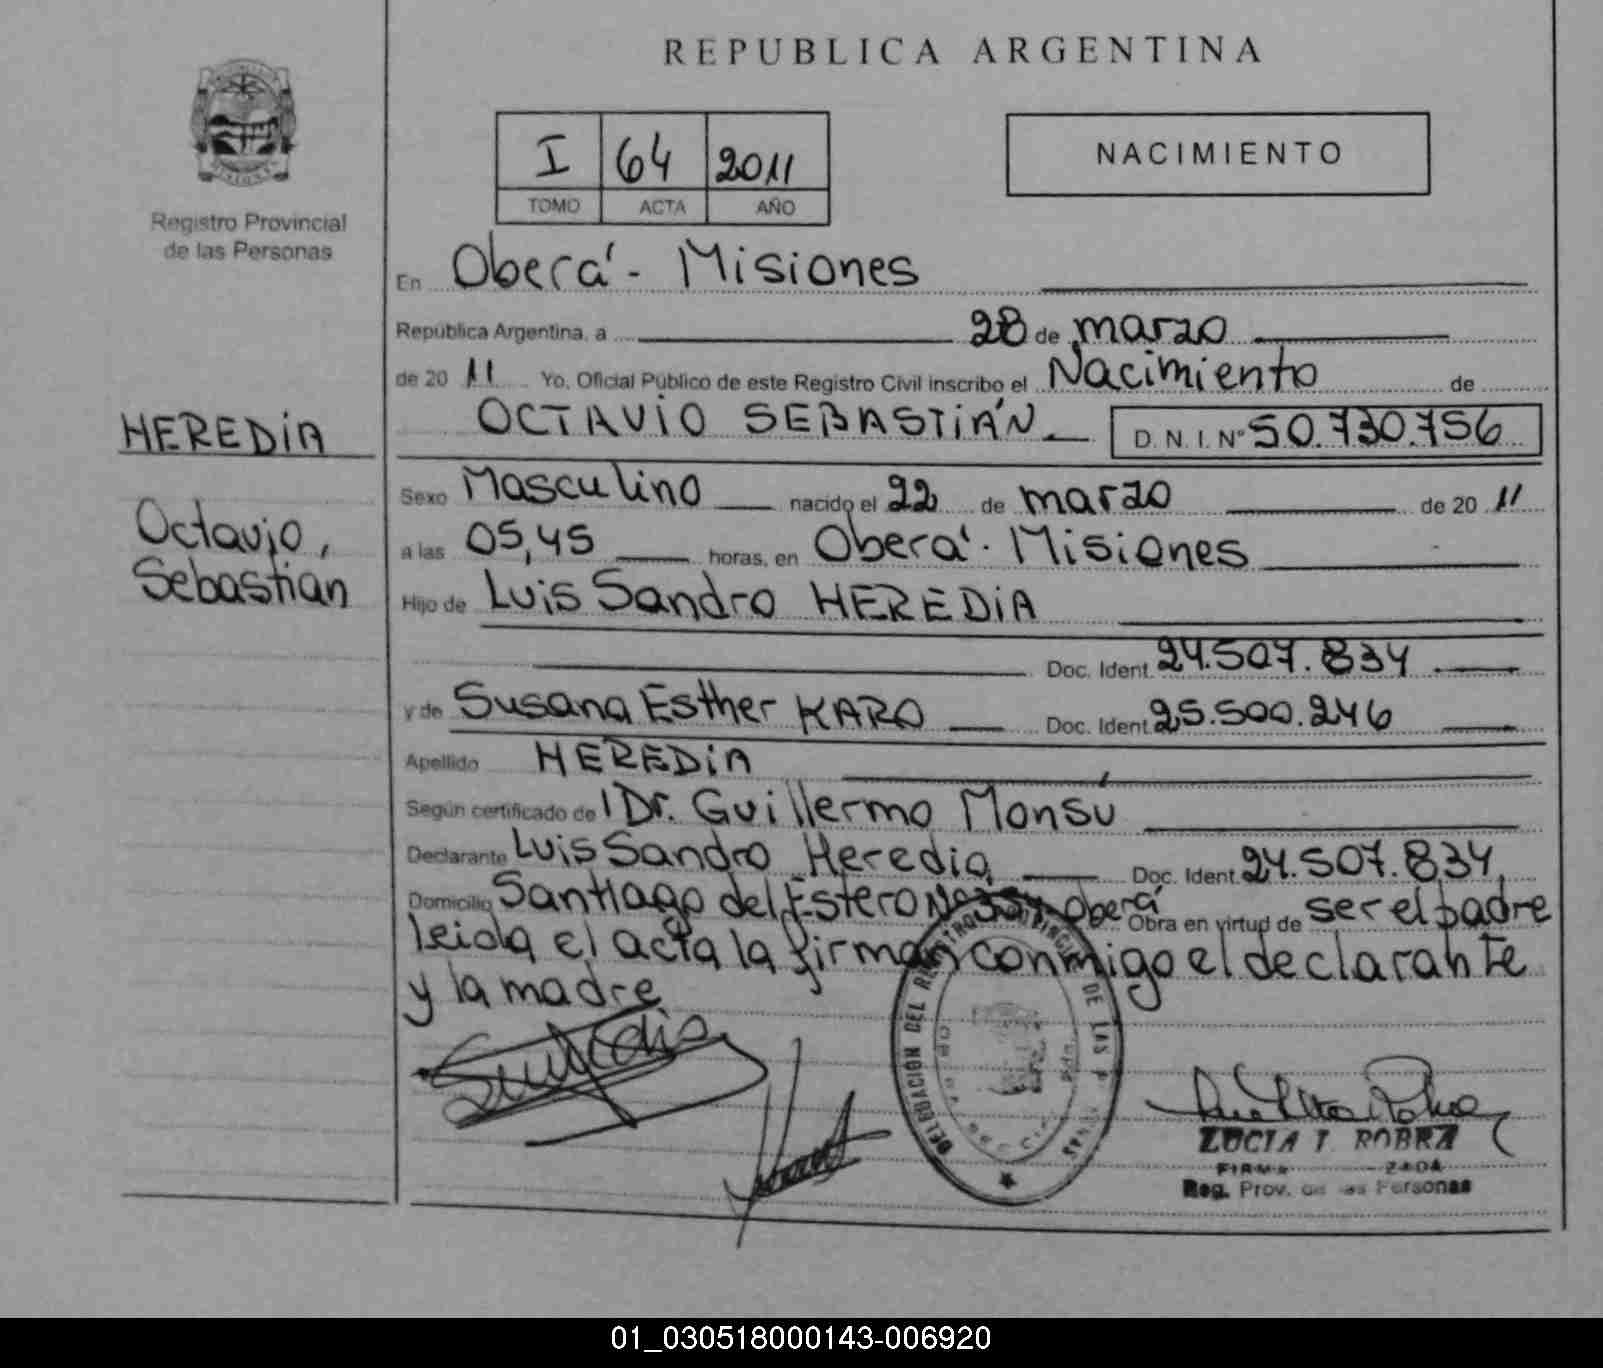 REPUBLICA ARGENTINA
Registro Provincial
de las Personas
I 64 2011
TOMO ACTA AÑO
NACIMIENTO
En Oberá - Misiones
República Argentina, a 28 de marzo
de 20 11 Yo, Oficial Público de este Registro Civil inscribo el Nacimiento de
HEREDIA
Octavio,
Sebastián
OCTAVIO SEBASTIÁN D. N. I. Nº 50.730.756
Sexo Masculino nacido el 22 de marzo de 20 11
a las 05,45 horas, en Oberá - Misiones
Hijo de Luis Sandro HEREDIA
Doc. Ident. 24.507.834
y de Susana Esther KARO Doc. Ident. 25.500.246
Apellido HEREDIA
Según certificado de Dr. Guillermo Monsú
Declarante Luis Sandro Heredia Doc. Ident. 24.507.834
Domicilio Santiago del Estero Oberá Obra en virtud de ser el padre
leida el acta la firman conmigo el declarante
y la madre
DELEGACION DEL REGISTRO PROVINCIAL DE LAS
LUCIA T. ROBRA
Reg. Prov. de las Personas
01_030518000143-006920